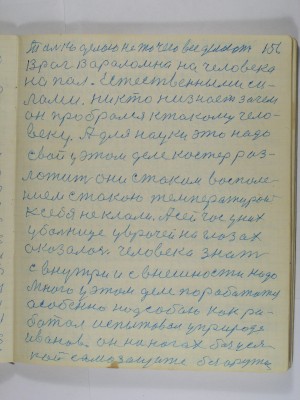 Там не делают не то чего вы делают 156
Враг вараломна на человека
напал. Естественными си-
лами. Никто низнает зачем
он пробрался к такому чело-
веку. А для науки это надо
свой у этом деле костер раз-
ложит они с таком восполе-
нием с такою температурой
к себя не клали. А сейчас у них
у болнице у врачей на глазах
оказалося. Человека знат
с внутри и с внешности надо
Много у этом деле поработат
особенно над собою как ра-
ботал испытовал у природе
Иванов. он на ногах без уся-
кой самозащите без оружя